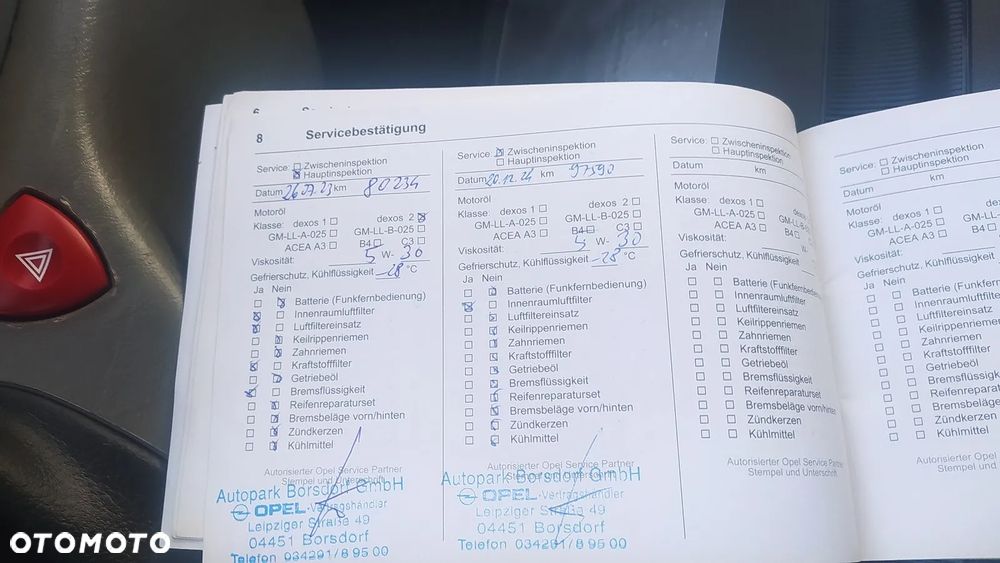 8 Servicebestätigung
Service: ☐ Zwischeninspektion
☒ Hauptinspektion
Datum 26.07.23 km 80234
Motoröl
Klasse: dexos 1 ☐ dexos 2 ☒
GM-LL-A-025 ☐ GM-LL-B-025 ☐
ACEA A3 ☐ B4 ☐ C3 ☐
Viskosität: 5 W- 30
Gefrierschutz, Kühlflüssigkeit -28 °C
Ja Nein
☐ ☒ Batterie (Funkfernbedienung)
☒ ☐ Innenraumluftfilter
☒ ☐ Luftfiltereinsatz
☐ ☒ Keilrippenriemen
☐ ☒ Zahnriemen
☒ ☐ Kraftstofffilter
☐ ☒ Getriebeöl
☒ ☐ Bremsflüssigkeit
☐ ☒ Reifenreparaturset
☐ ☒ Bremsbeläge vorn/hinten
☐ ☒ Zündkerzen
☐ ☒ Kühlmittel
Autorisierter Opel Service Partner
Stempel und Unterschrift
Autopark Borsdorf GmbH
OPEL-Vertragshändler
Leipziger Straße 49
04451 Borsdorf
Telefon 034291/8 95 00
Service: ☒ Zwischeninspektion
☐ Hauptinspektion
Datum 20.12.24 km 97590
Motoröl
Klasse: dexos 1 ☐ dexos 2 ☐
GM-LL-A-025 ☐ GM-LL-B-025 ☐
ACEA A3 ☐ B4 ☐ C3 ☐
Viskosität: 5 W- 30
Gefrierschutz, Kühlflüssigkeit -28 °C
Ja Nein
☐ ☒ Batterie (Funkfernbedienung)
☒ ☐ Innenraumluftfilter
☐ ☒ Luftfiltereinsatz
☐ ☒ Keilrippenriemen
☐ ☒ Zahnriemen
☐ ☒ Kraftstofffilter
☐ ☒ Getriebeöl
☐ ☒ Bremsflüssigkeit
☐ ☒ Reifenreparaturset
☐ ☒ Bremsbeläge vorn/hinten
☐ ☒ Zündkerzen
☐ ☒ Kühlmittel
Autorisierter Opel Service Partner
Stempel und Unterschrift
Autopark Borsdorf GmbH
OPEL-Vertragshändler
Leipziger Straße 49
04451 Borsdorf
Telefon 034291/8 95 00
Service: ☐ Zwischeninspektion
☐ Hauptinspektion
Datum km
Motoröl
Klasse: dexos 1 ☐
GM-LL-A-025 ☐ GM-LL-B-025
ACEA A3 ☐ B4 ☐
Viskosität: W-
Gefrierschutz, Kühlflüssigkeit
Ja Nein
☐ ☐ Batterie (Funkfernbedienung)
☐ ☐ Innenraumluftfilter
☐ ☐ Luftfiltereinsatz
☐ ☐ Keilrippenriemen
☐ ☐ Zahnriemen
☐ ☐ Kraftstofffilter
☐ ☐ Getriebeöl
☐ ☐ Bremsflüssigkeit
☐ ☐ Reifenreparaturset
☐ ☐ Bremsbeläge vorn/hinten
☐ ☐ Zündkerzen
☐ ☐ Kühlmittel
Autorisierter Opel Service Partner
Stempel und Unterschrift
Service: ☐ Zwischeninspektion
☐ Hauptinspektion
Datum km
Motoröl
Klasse: dexos 1 ☐
GM-LL-A-025 ☐
ACEA A3 ☐ B4
Viskosität:
Gefrierschutz, Kühlflüssigkeit
Ja Nein
☐ ☐ Batterie (Funkfernbedienung)
☐ ☐ Innenraumluftfilter
☐ ☐ Luftfiltereinsatz
☐ ☐ Keilrippenriemen
☐ ☐ Zahnriemen
☐ ☐ Kraftstofffilter
☐ ☐ Getriebeöl
☐ ☐ Bremsflüssigkeit
☐ ☐ Reifenreparaturset
☐ ☐ Bremsbeläge vorn/
☐ ☐ Zündkerzen
☐ ☐ Kühlmittel
Autorisierter Opel Service
Stempel und
OTOMOTO